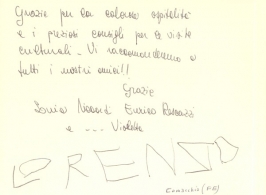 Grazie per la calorosa ospitalità
e i preziosi consigli per le visite
culturali. Vi raccomanderemo a
tutti i nostri amici!!
Grazie
Enrico
e ... Violetta
LORENZO